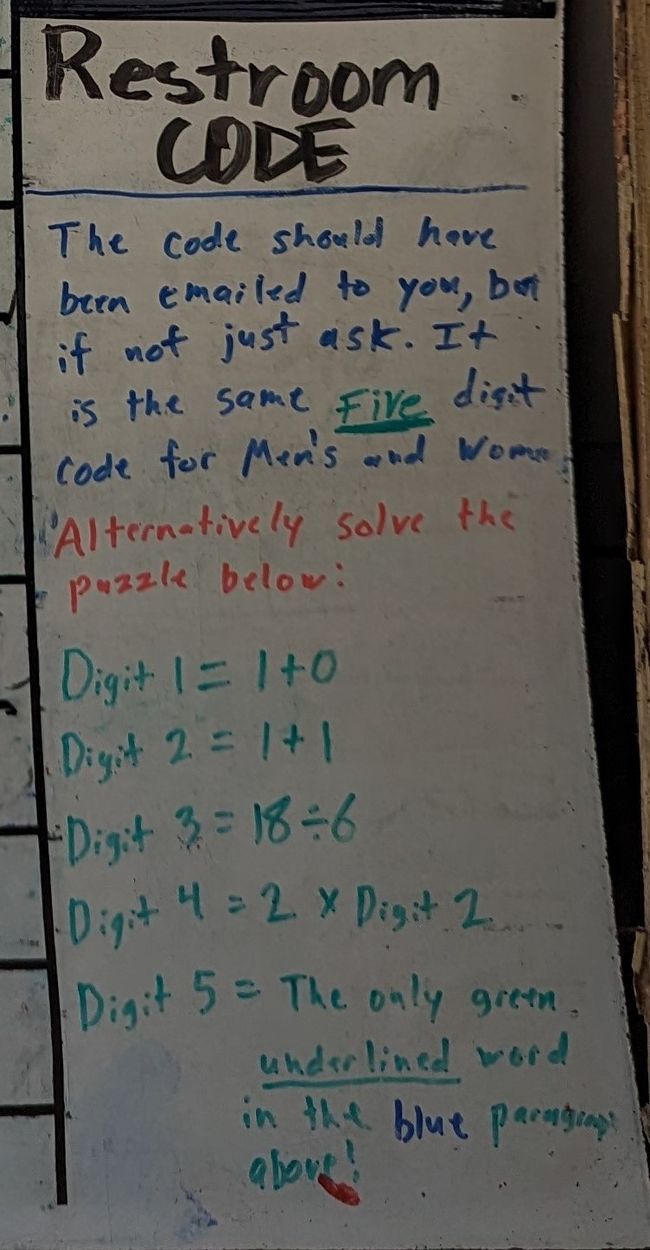 Restroom
CODE
The code should have
been emailed to you, but
if not just ask. It
is the same Five digit
code for Men's and Women
Alternatively solve the
puzzle below:
Digit 1 = 1+0
Digit 2 = 1+1
Digit 3 = 18÷6
Digit 4 = 2 x Digit 2
Digit 5 = The only green
underlined word
in the blue paragraph
above!